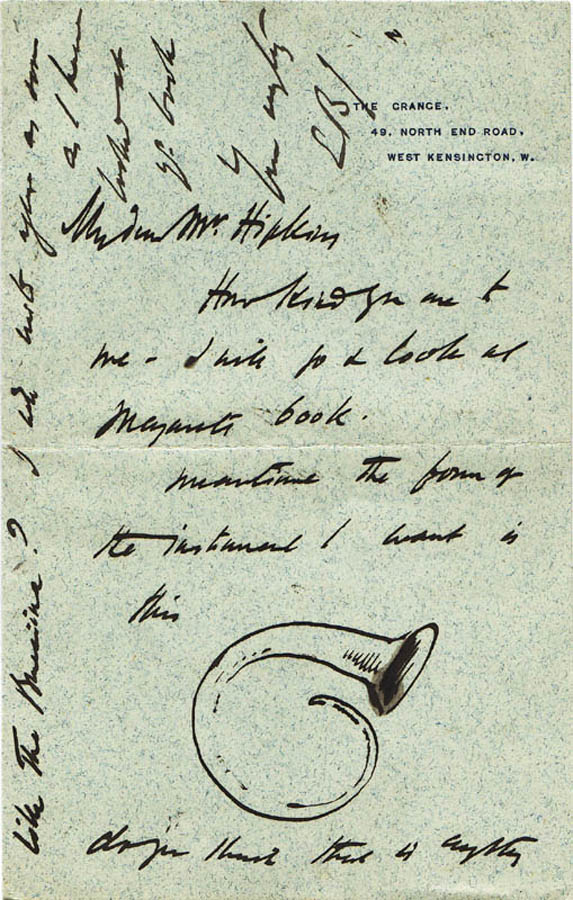 THE GRANGE,
49, NORTH END ROAD,
WEST KENSINGTON, W.
My dear Mr. Hipkins
How kind you are to
me - I will go & look at
book.
meantime the form of
the instrument I want is
this
do you think there is anything
like the ? I will write again as soon
as I have
looked at
book
EBJ